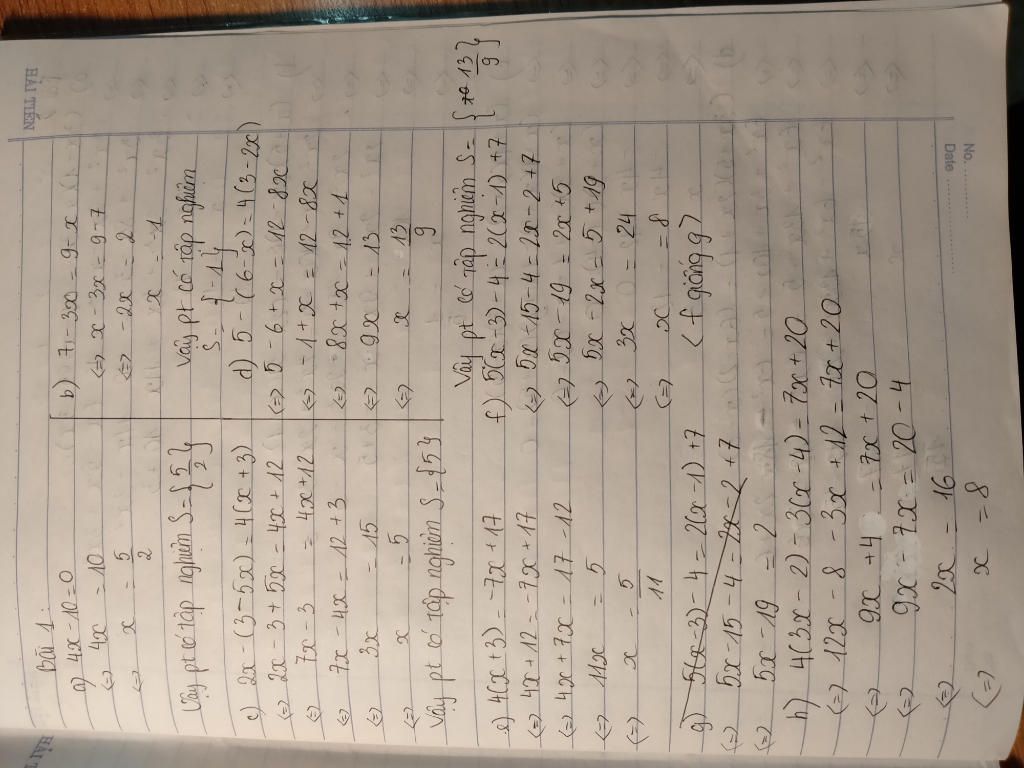 HẢI TIẾN
No. ............
Date ............
Bài 1:
a) 4x - 10 = 0
(=) 4x = 10
(=) x = 5/2
Vậy pt có tập nghiệm S = {5/2}
b) 7 - 3x = 9 - x
(=) x - 3x = 9 - 7
(=) -2x = 2
x = -1
Vậy pt có tập nghiệm
S = {-1}
c) 2x - (3 - 5x) = 4(x + 3)
(=) 2x - 3 + 5x = 4x + 12
(=) 7x - 3 = 4x + 12
(=) 7x - 4x = 12 + 3
(=) 3x = 15
(=) x = 5
Vậy pt có tập nghiệm S = {5}
d) 5 - (6 - x) = 4(3 - 2x)
(=) 5 - 6 + x = 12 - 8x
(=) -1 + x = 12 - 8x
(=) 8x + x = 12 + 1
(=) 9x = 13
(=) x = 13/9
Vậy pt có tập nghiệm S = {13/9}
e) 4(x + 3) = -7x + 17
(=) 4x + 12 = -7x + 17
(=) 4x + 7x = 17 - 12
(=) 11x = 5
(=) x = 5/11
f) 5(x - 3) - 4 = 2(x - 1) + 7
(=) 5x - 15 - 4 = 2x - 2 + 7
(=) 5x - 19 = 2x + 5
(=) 5x - 2x = 5 + 19
(=) 3x = 24
(=) x = 8
(f giống g)
g) 5(x - 3) - 4 = 2(x - 1) + 7
(=) 5x - 15 - 4 = 2x - 2 + 7
(=) 5x - 19 = 2
h) 4(3x - 2) - 3(x - 4) = 7x + 20
(=) 12x - 8 - 3x + 12 = 7x + 20
(=) 9x + 4 = 7x + 20
(=) 9x - 7x = 20 - 4
(=) 2x = 16
(=) x = 8